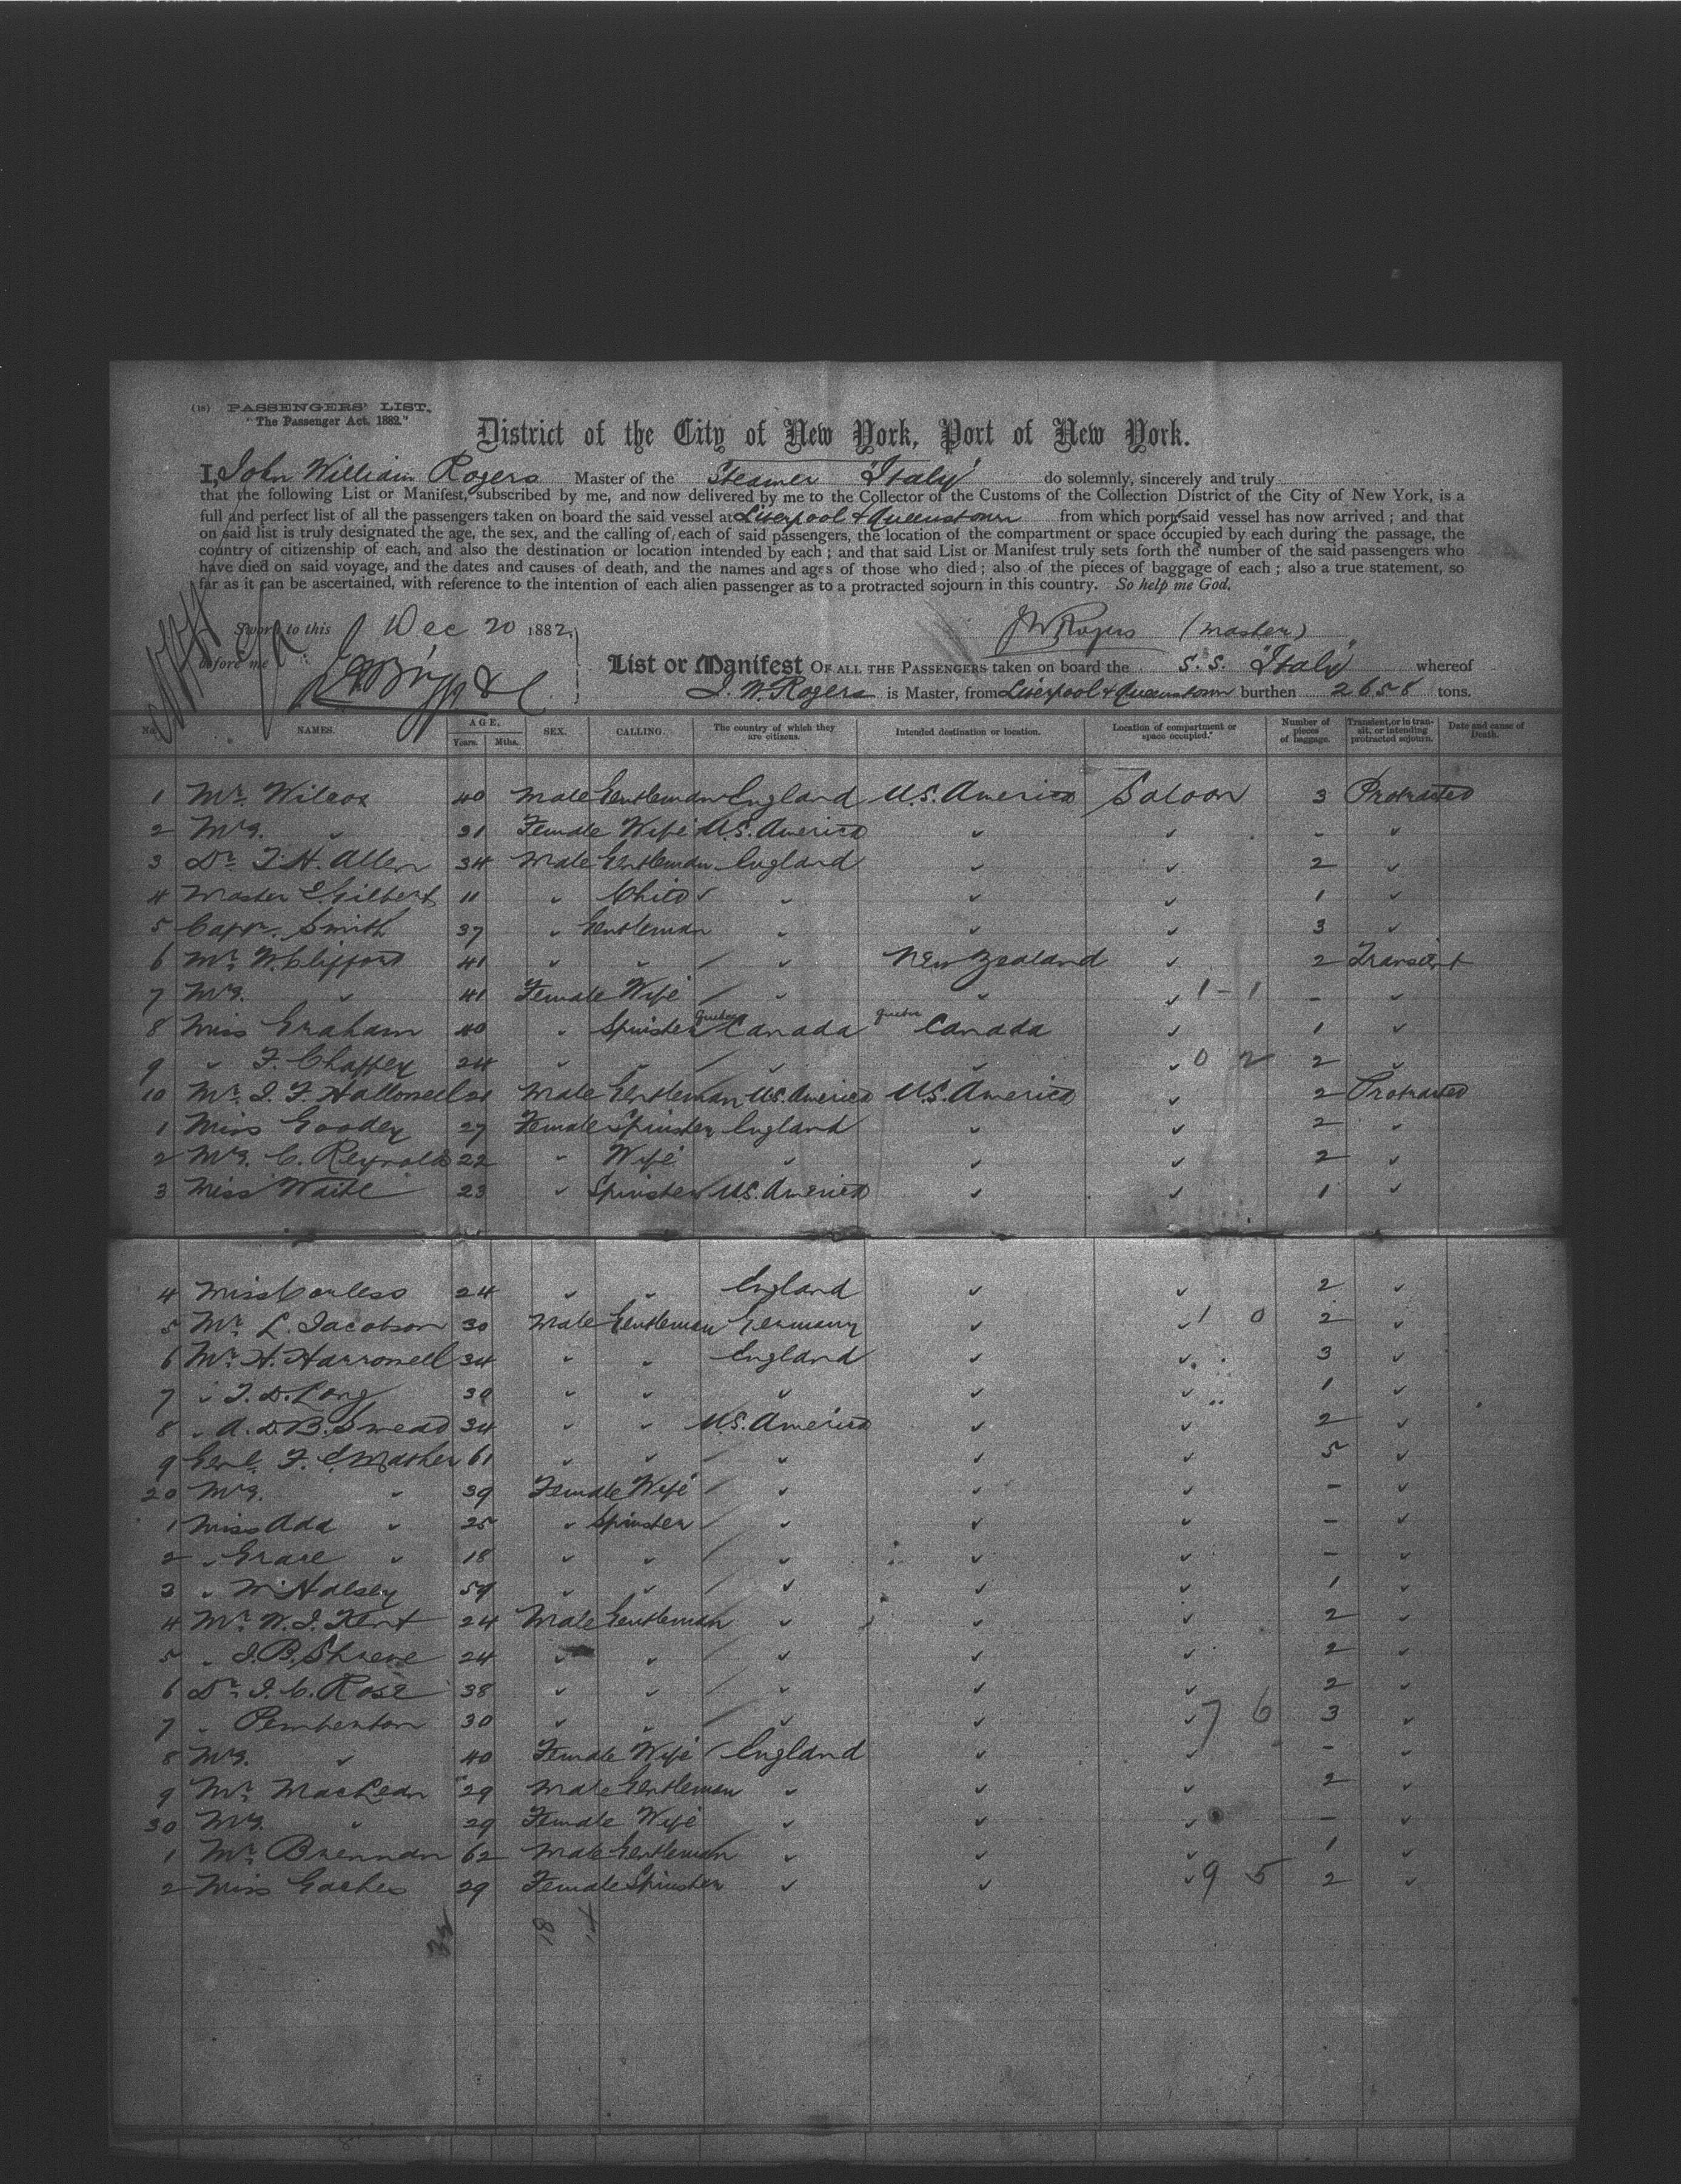 (18) PASSENGERS' LIST.
"The Passenger Act, 1882."
District of the City of New York, Port of New York.
I, John William Rogers Master of the Steamer "Italy" do solemnly, sincerely and truly
that the following List or Manifest, subscribed by me, and now delivered by me to the Collector of the Customs of the Collection District of the City of New York, is a
full and perfect list of all the passengers taken on board the said vessel at Liverpool & Queenstown from which port said vessel has now arrived; and that
on said list is truly designated the age, the sex, and the calling of each of said passengers, the location of the compartment or space occupied by each during the passage, the
country of citizenship of each, and also the destination or location intended by each; and that said List or Manifest truly sets forth the number of the said passengers who
have died on said voyage, and the dates and causes of death, and the names and ages of those who died; also of the pieces of baggage of each; also a true statement, so
far as it can be ascertained, with reference to the intention of each alien passenger as to a protracted sojourn in this country. So help me God.
Sworn to this Dec 20 1882, JW Rogers (Master)
before me
List or Manifest OF ALL THE PASSENGERS taken on board the S.S. "Italy" whereof
J. W. Rogers is Master, from Liverpool & Queenstown burthen 2658 tons.
No. NAMES. AGE. Years. Mths. SEX. CALLING. The country of which they are citizens. Intended destination or location. Location of compartment or space occupied. Number of pieces of baggage. Transient, or in transit, or intending protracted sojourn. Date and cause of Death.
1 Mr. Wilcox 40 Male Gentleman England U.S. America Saloon 3 Protracted
2 Mrs. " 31 Female Wife U.S. America " " - "
3 Dr. T. H. Allen 34 Male Gentleman England " " 2 "
4 Master E Gilbert 11 " Child " " " 1 "
5 Capn. Smith 37 " Gentleman " " " 3 "
6 Mr. W. Clifford 41 " " / " New Zealand " 2 Transient
7 Mrs. " 41 Female Wife / " " " 1-1 - "
8 Miss Graham 40 " Spinster Quebec Canada Quebec Canada " 1 "
9 " F. Chaffey 24 " " / " " " 0 2 2 "
10 Mr. J. F. Hallowell 21 Male Gentleman U.S. America U.S. America " 2 Protracted
1 Miss Goodey 27 Female Spinster England " " 2 "
2 Mrs. C. Reynolds 22 " Wife " " " 2 "
3 Miss Waite 23 " Spinster U.S. America " " 1 "
4 Miss Corless 24 " " England " " 2 "
5 Mr. L. Jacobson 30 Male Gentleman Germany " " 1 0 2 "
6 Mr. H. Harrowell 34 " " England " " 3 "
7 " T. D. Long 39 " " " " " 1 "
8 " A. D. B. Smead 34 " " U.S. America " " 2 "
9 Genl. F. E Mather 61 " " / " " " 5 "
20 Mrs. " 39 Female Wife / " " " - "
1 Miss Ada " 25 " Spinster / " " " - "
2 " Grace " 18 " " / " " " - "
3 " M. Halsey 59 " " / " " " 1 "
4 Mr. W. J. Kent 24 Male Gentleman " " " 2 "
5 " J. B. Shreve 24 " " / " " " 2 "
6 Dr. J. C. Rose 38 " " / " " " 2 "
7 " Pemberton 30 " " / " " " 7 6 3 "
8 Mrs. " 40 Female Wife / England " " - "
9 Mr. MacLean 29 Male Gentleman " " " 2 "
30 Mrs. " 29 Female Wife " " " - "
1 Mr. Brennan 62 Male Gentleman " " " 1 "
2 Miss Gaches 29 Female Spinster " " " 9 5 2 "
32 18 14